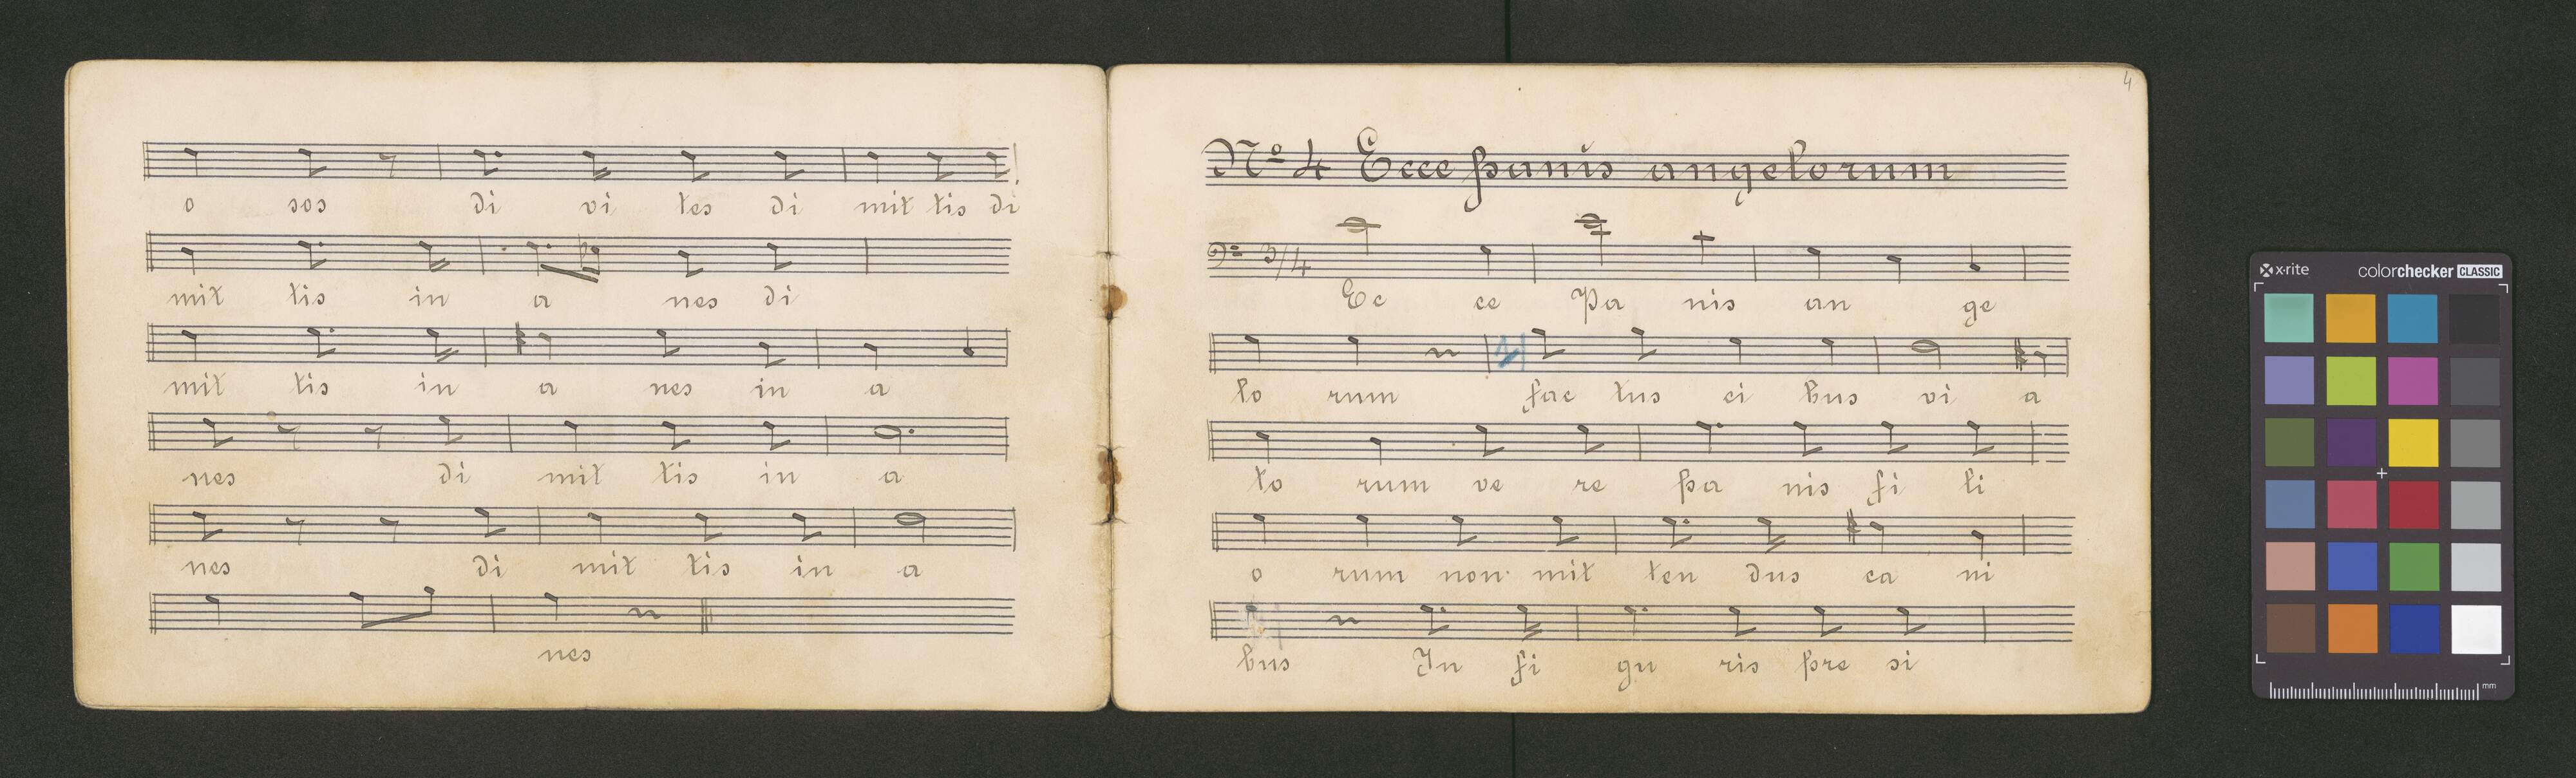 o sos di vi tes di mit tis di
mit tis in a nes di
mit tis in a nes in a
nes di mit tis in a
nes di mit tis in a
nes
4
Nº 4 Ecce panis angelorum
3/4
Ec ce Pa nis an ge
lo rum fac tus ci bus vi a
to rum ve re pa nis fi li
o rum non mit ten dus ca ni
bus In fi gu ris pre si
x-rite colorchecker CLASSIC
mm